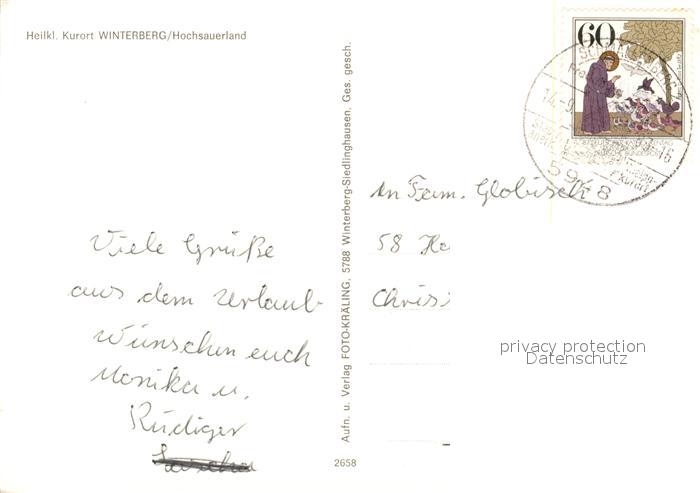 Heilkl. Kurort WINTERBERG/Hochsauerland
60
5948
Viele Grüße
aus dem Urlaub
wünschen euch
Monika u.
Rüdiger
Aufn. u. Verlag FOTO-KRÄLING, 5788 Winterberg-Siedlinghausen, Ges. gesch.
2658
An Fam. Globisch
58 Ha
Christ
privacy protection
Datenschutz